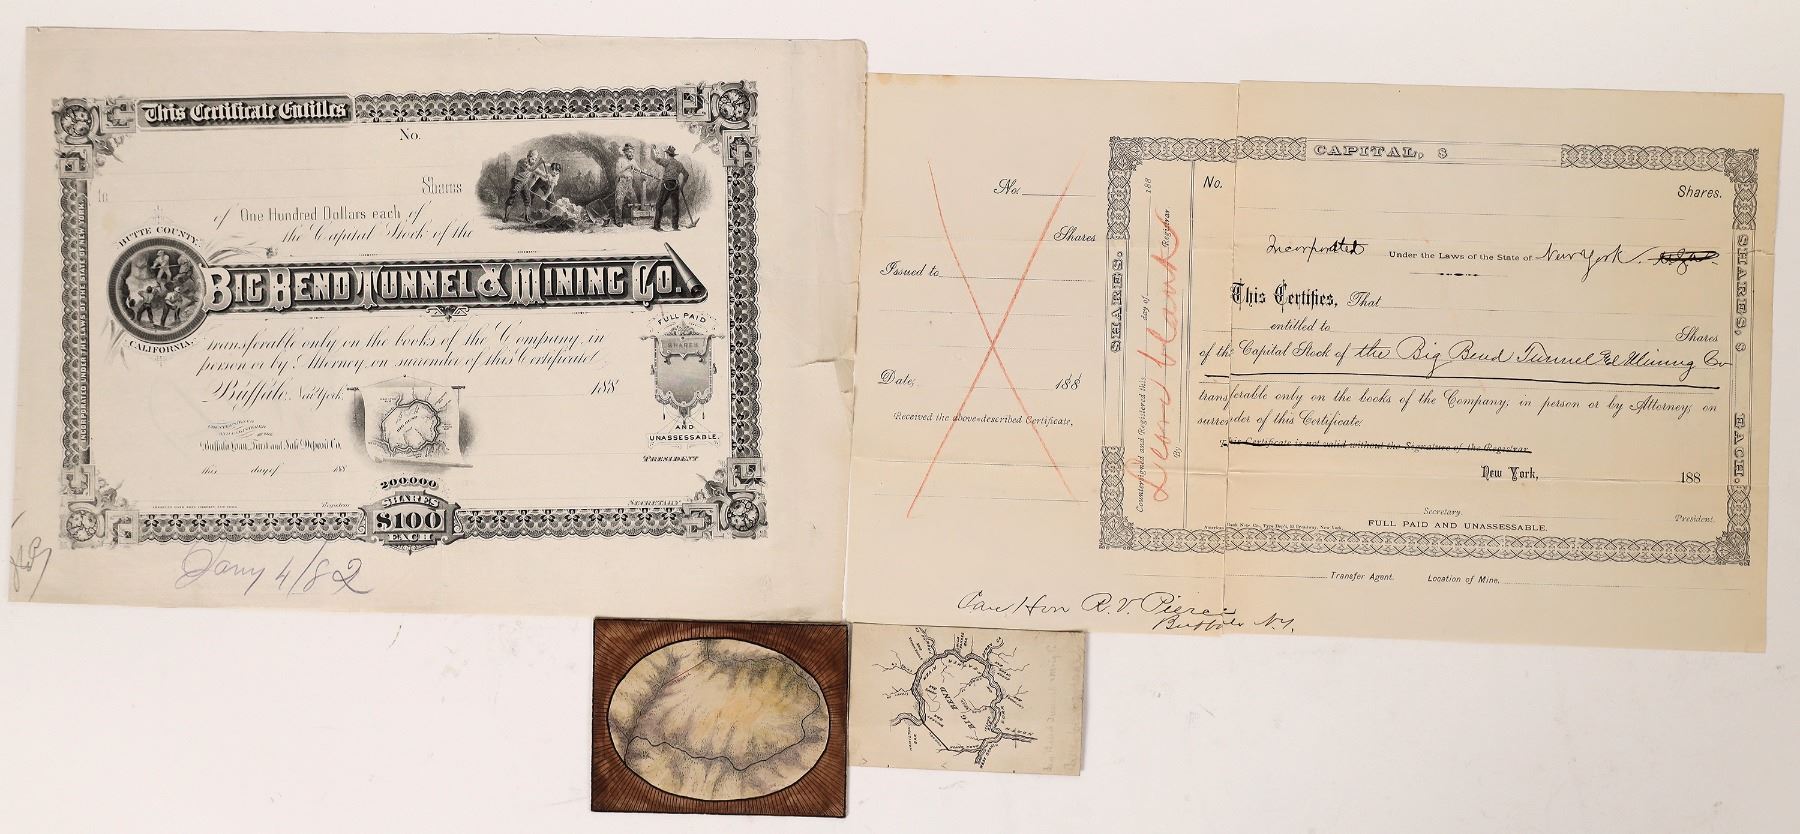 This Certificate Entitles
No.
to
Shares
of One Hundred Dollars each of
the Capital Stock of the
BUTTE COUNTY.
CALIFORNIA.
BIG BEND TUNNEL & MINING CO.
INCORPORATED UNDER THE LAWS OF THE STATE OF NEW YORK.
transferable only on the books of the Company in
person or by Attorney on surrender of this Certificate
Buffalo, New York, 188
FULL PAID
SHARES
AND
UNASSESSABLE.
COUNTERSIGNED
AND REGISTERED
Buffalo Loan, Trust and Safe Deposit Co.
this day of 188
Registrar
PRESIDENT
SECRETARY
200,000
SHARES
$100
EACH
Jany 4/82
No.
Shares
Issued to
Date, 188
Received the above-described Certificate,
SHARES.
Countersigned and Registered this day of 188
By Registrar
CAPITAL, $
No.
Shares.
Incorporated Under the Laws of the State of New York.
This Certifies, That
entitled to Shares
of the Capital Stock of the Big Bend Tunnel & Mining Co
transferable only on the books of the Company, in person or by Attorney, on
surrender of this Certificate.
This Certificate is not valid without the Signature of the Registrar
New York, 188
Secretary.
President.
FULL PAID AND UNASSESSABLE.
American Bank Note Co., Type Dep't, 53 Broadway, New York.
SHARES, $ EACH.
Transfer Agent. Location of Mine,
Care Hon R. V. Pierce
Buffalo N.Y.
BIG BEND
NORTH